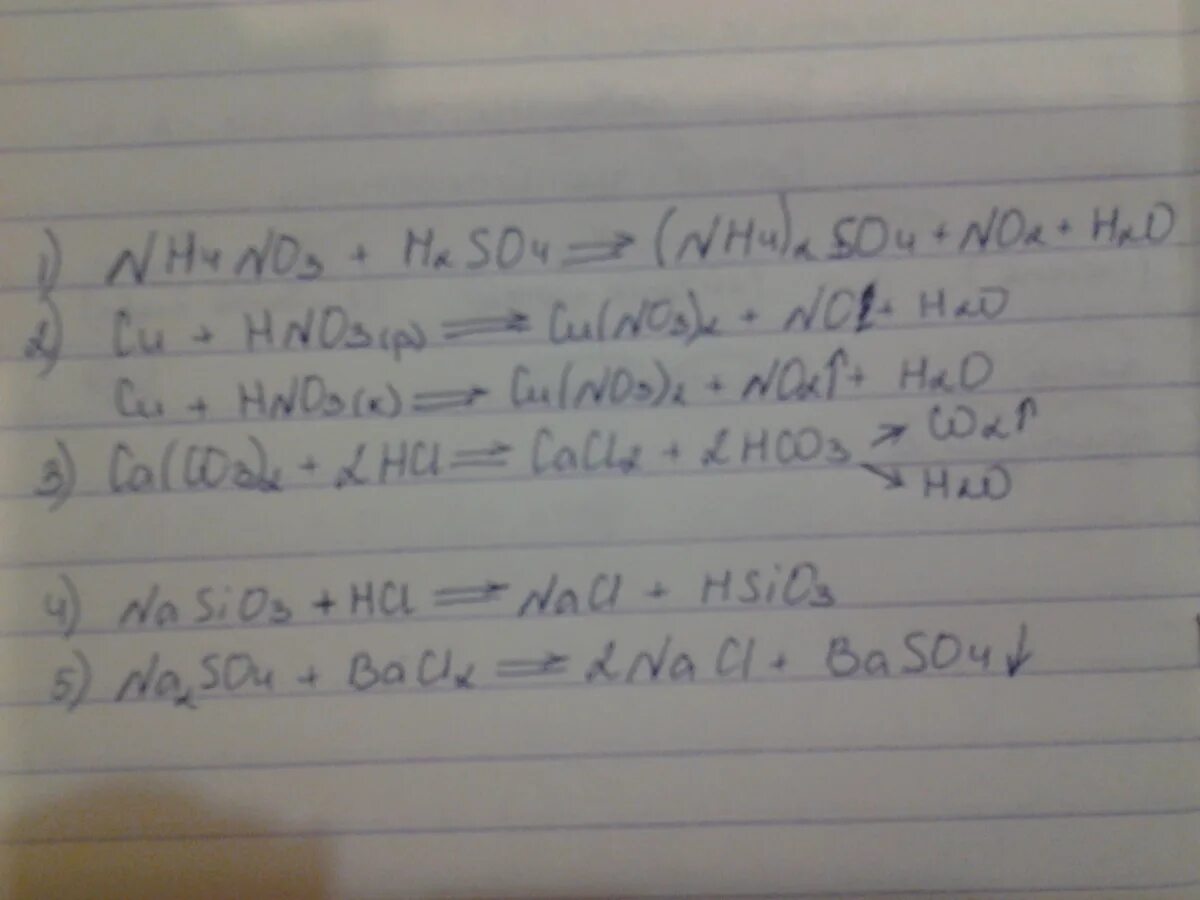 1) NH4NO3 + H2SO4 ⇒ (NH4)2SO4 + NO2 + H2O
2) Cu + HNO3(р) ⇒ Cu(NO3)2 + NO↑ + H2O
Cu + HNO3(к) ⇒ Cu(NO3)2 + NO2↑ + H2O
3) Ca(CO3)2 + 2HCl ⇒ CaCl2 + 2HCO3 → CO2↑
→ H2O
4) NaSiO3 + HCl ⇒ NaCl + HSiO3
5) Na2SO4 + BaCl2 ⇒ 2NaCl + BaSO4↓